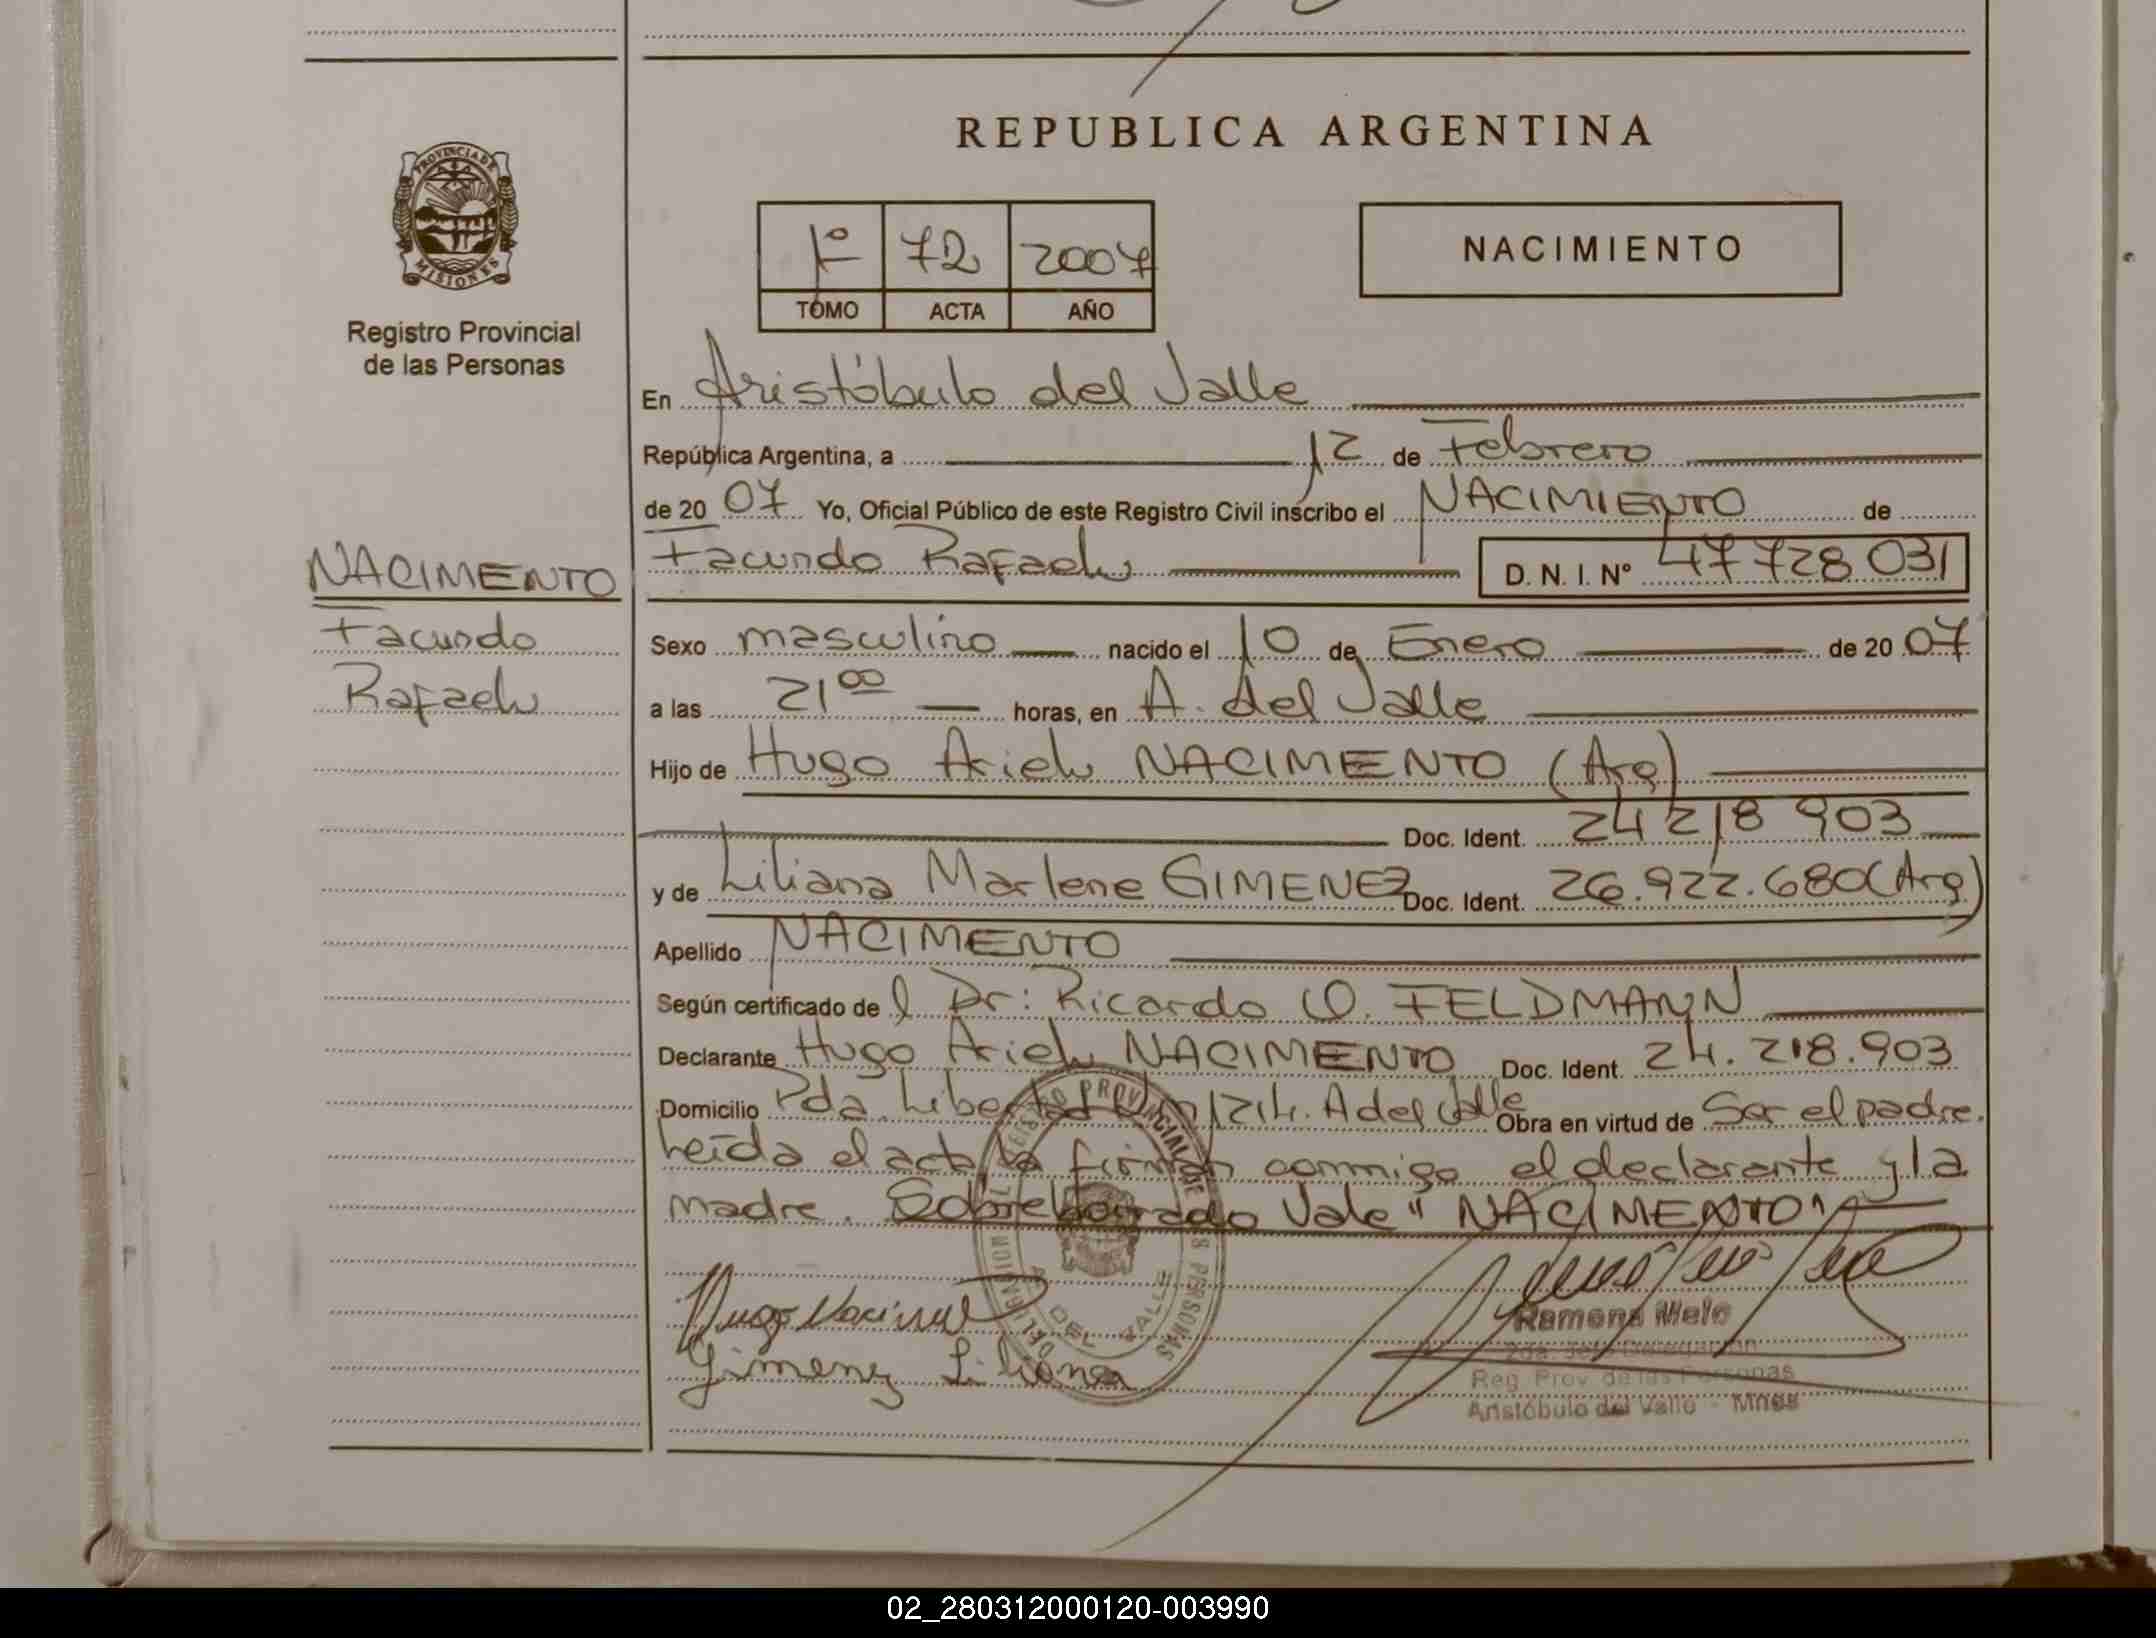 REPUBLICA ARGENTINA
PROVINCIA DE
MISIONES
Registro Provincial
de las Personas
1º 72 2007
TOMO ACTA AÑO
NACIMIENTO
En Aristóbulo del Valle
República Argentina, a 12 de Febrero
de 20 07 Yo, Oficial Público de este Registro Civil inscribo el NACIMIENTO de
Facundo Rafael D. N. I. Nº 47 728 031
NACIMENTO
Facundo
Rafael
Sexo masculino nacido el 10 de Enero de 20 07
a las 21 00 horas, en A. del Valle
Hijo de Hugo Ariel NACIMENTO (Arg)
Doc. Ident. 24 218 903
y de Liliana Marlene GIMENEZ Doc. Ident. 26.922.680 (Arg)
Apellido NACIMENTO
Según certificado de l Dr: Ricardo O. FELDMANN
Declarante Hugo Ariel NACIMENTO Doc. Ident. 24.218.903
Domicilio Pda. Libertad 1214. A del Valle Obra en virtud de Ser el padre.
Leída el acta, la firman conmigo el declarante y la
madre. Sobreborrado Vale " NACIMENTO "
Hugo Nacimento
Gimenez Liliana
Ramona Melo
2da. Jefe Delegación
Reg. Prov. de las Personas
Aristóbulo del Valle - Mnes
02_280312000120-003990